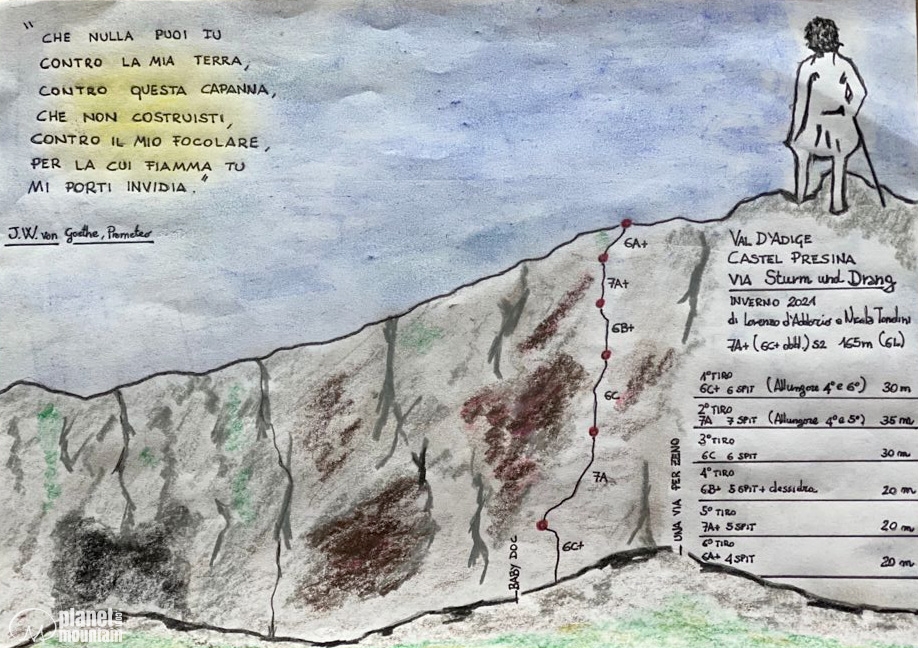 "CHE NULLA PUOI TU
CONTRO LA MIA TERRA,
CONTRO QUESTA CAPANNA,
CHE NON COSTRUISTI,
CONTRO IL MIO FOCOLARE,
PER LA CUI FIAMMA TU
MI PORTI INVIDIA."
J.W. von Goethe, Prometeo
VAL D'ADIGE
CASTEL PRESINA
VIA Sturm und Drang
INVERNO 2021
di Lorenzo d'Addario e Nicola Tondini
7A+ (6C+ obbl.) S2 165m (6L)
1° TIRO
6C+ 6 SPIT (Allungare 4° e 6°) 30 m
2° TIRO
7A 7 SPIT (Allungare 4° e 5°) 35 m
3° TIRO
6C 6 SPIT 30 m
4° TIRO
6B+ 5 SPIT + clessidra 20 m
5° TIRO
7A+ 5 SPIT 20 m
6° TIRO
6A+ 4 SPIT 20 m
6A+
7A+
6B+
6C
7A
6C+
BABY DOC
UNA VIA PER ZENO
planet
mountain
.com